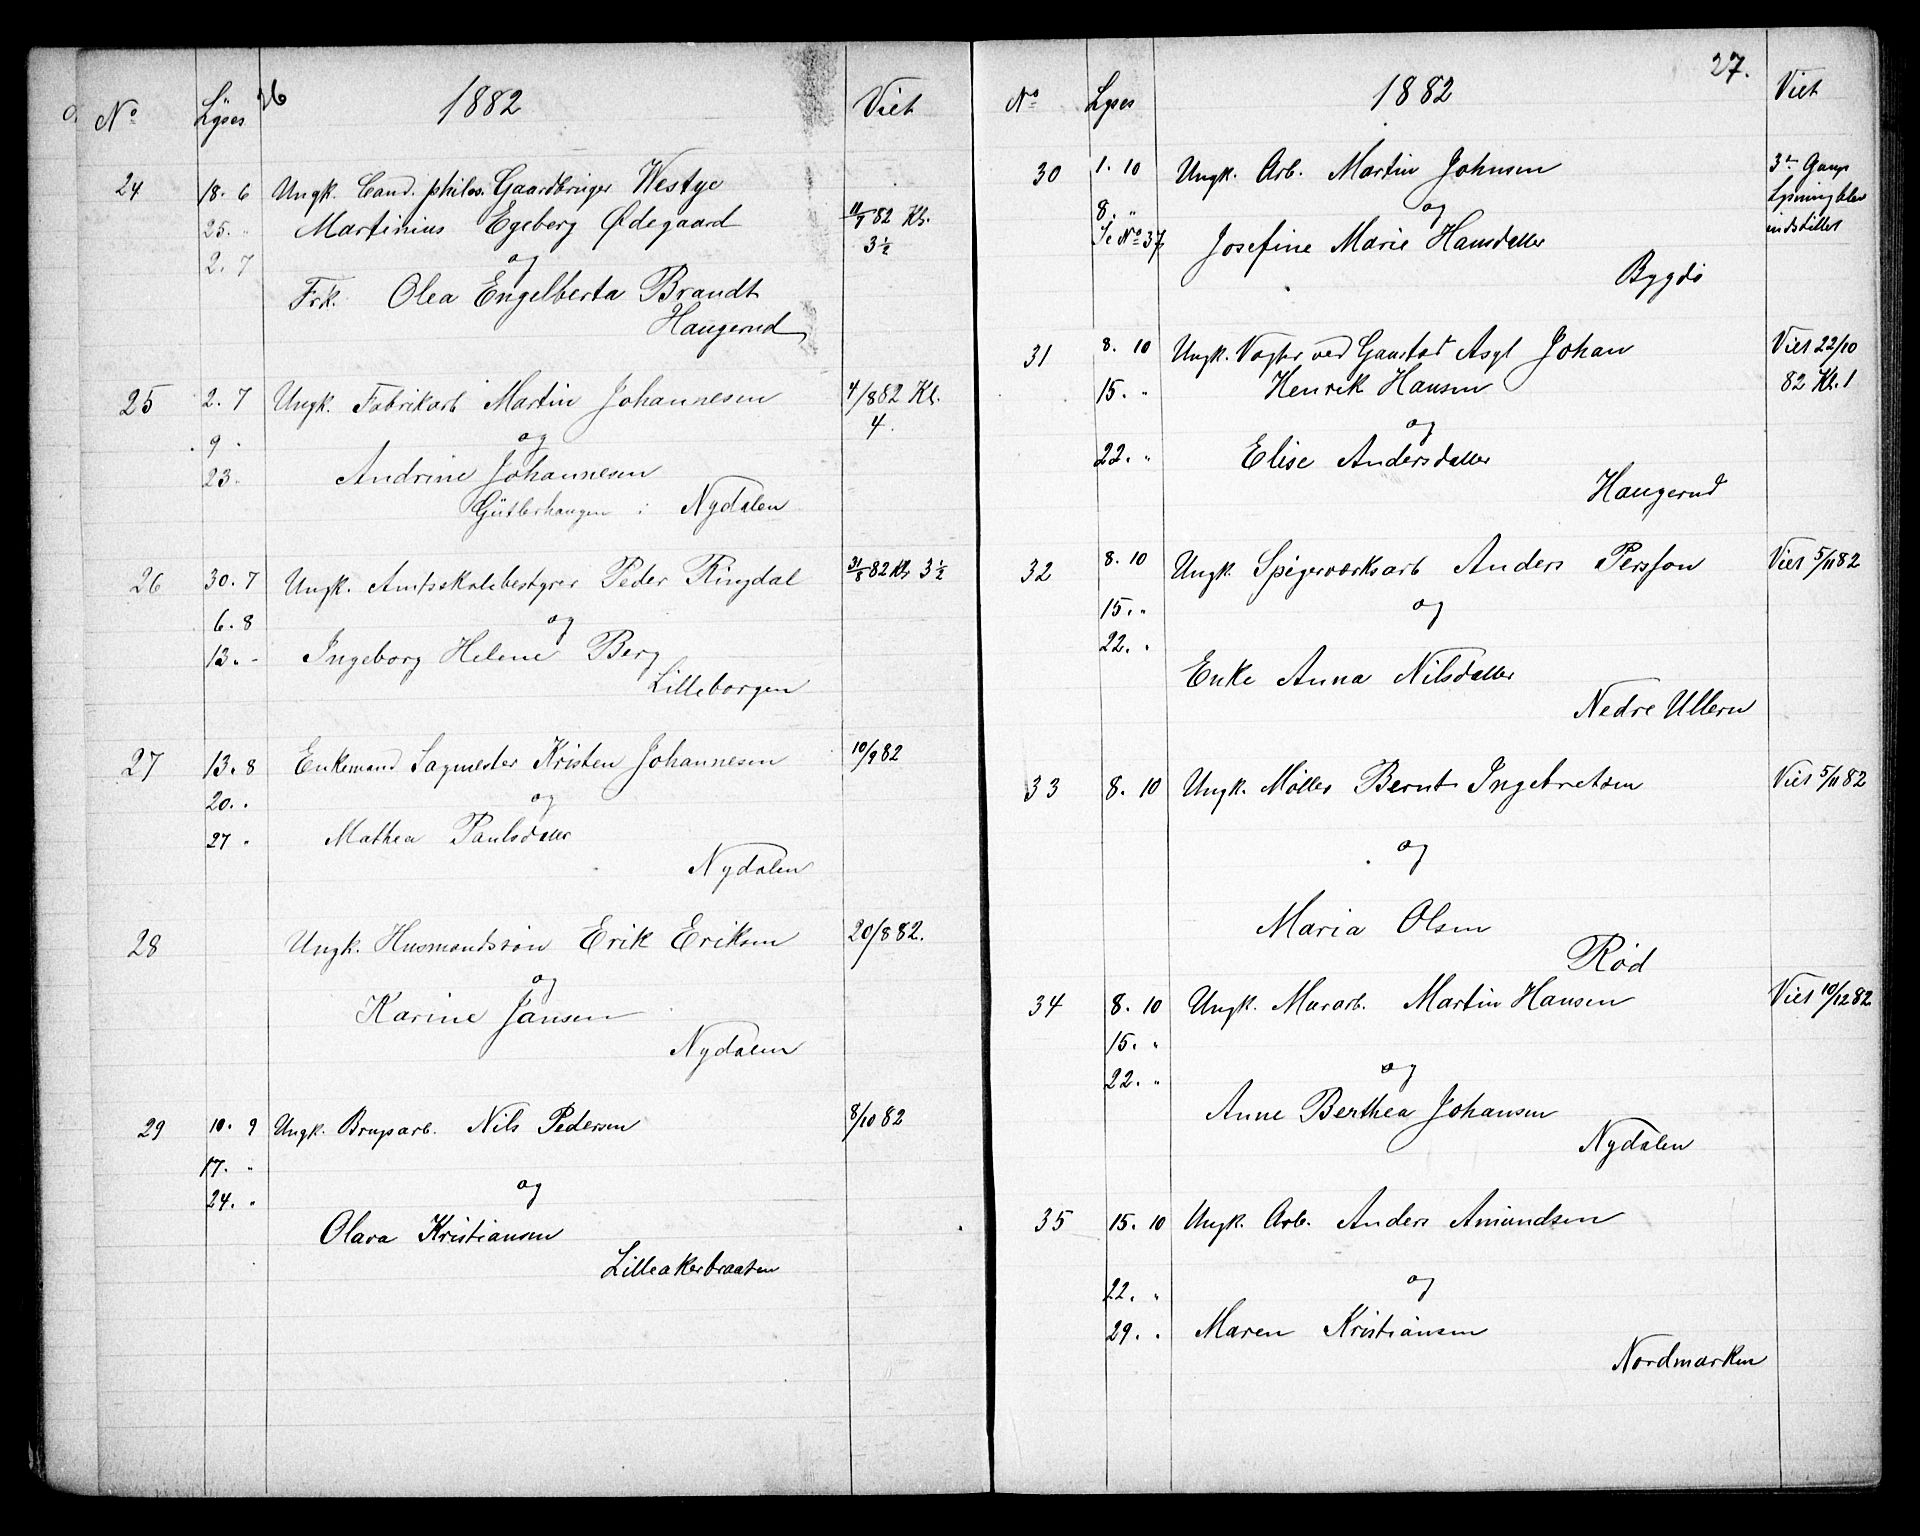 26
1882
No Lyses Viet
24 18. 6 Ungk. Cand. philos. Gaardbruger Westye
25. " Martinius Egeberg Ødegaard 11/7 82 Kl. 3½
2. 7 og
Frk. Olea Engelberta Brandt
Haugerud
25 2. 7 Ungk. Fabrikarb Martin Johannesen 4/8 82 Kl. 4.
9 " og
23. Andrine Johannesen
Gütlerhaugen i Nydalen
26 30. 7 Ungk. Amtsskolebestyrer Peder Ringdal 31/8 82 Kl 3½
6. 8 og
13. " Ingeborg Helene Berg
Lilleborgen
27 13. 8 Enkemand Sagmester Kristen Johannesen 10/9 82
20. " og
27 " Mathea Paulsdatter
Nydalen
28 Ungk. Husmandssøn Erik Eriksen 20/8 82.
og
Karine Jansen
Nydalen
29 10. 9 Ungk. Brugsarb. Nils Pedersen 8/10 82
17. "
24. " og
Olava Kristiansen
Lilleakerbraaten
27.
1882
No Lyses Viet
30 1. 10 Ungk. Arb. Martin Johnsen 3die Gangs
8. " og Lysning blev
Se No 37 Josefine Marie Hansdatter indstillet
Bygdø
31 8. 10 Ungk. Vogter ved Gaustad Asyl Johan Viet 22/10
15. " Henrik Hansen 82 Kl. 1
og
22. " Elise Andersdatter
Haugerud
32 8. 10 Ungk. Spigerværksarb Anders Persson Viet 5/11 82
15. " og
22. "
Enke Anna Nilsdatter
Nedre Ullern
33 8. 10 Ungk. Møller Bernt Ingebretsen Viet 5/11 82
og
Maria Olsen
Rød
34 8. 10 Ungk. Murarb. Martin Hansen Viet 10/12 82
15. "
22. " og
Anne Berthea Johansen
Nydalen
35 15. 10 Ungk. Arb. Anders Amundsen
22. " og
29. " Maren Kristiansen
Nordmarken